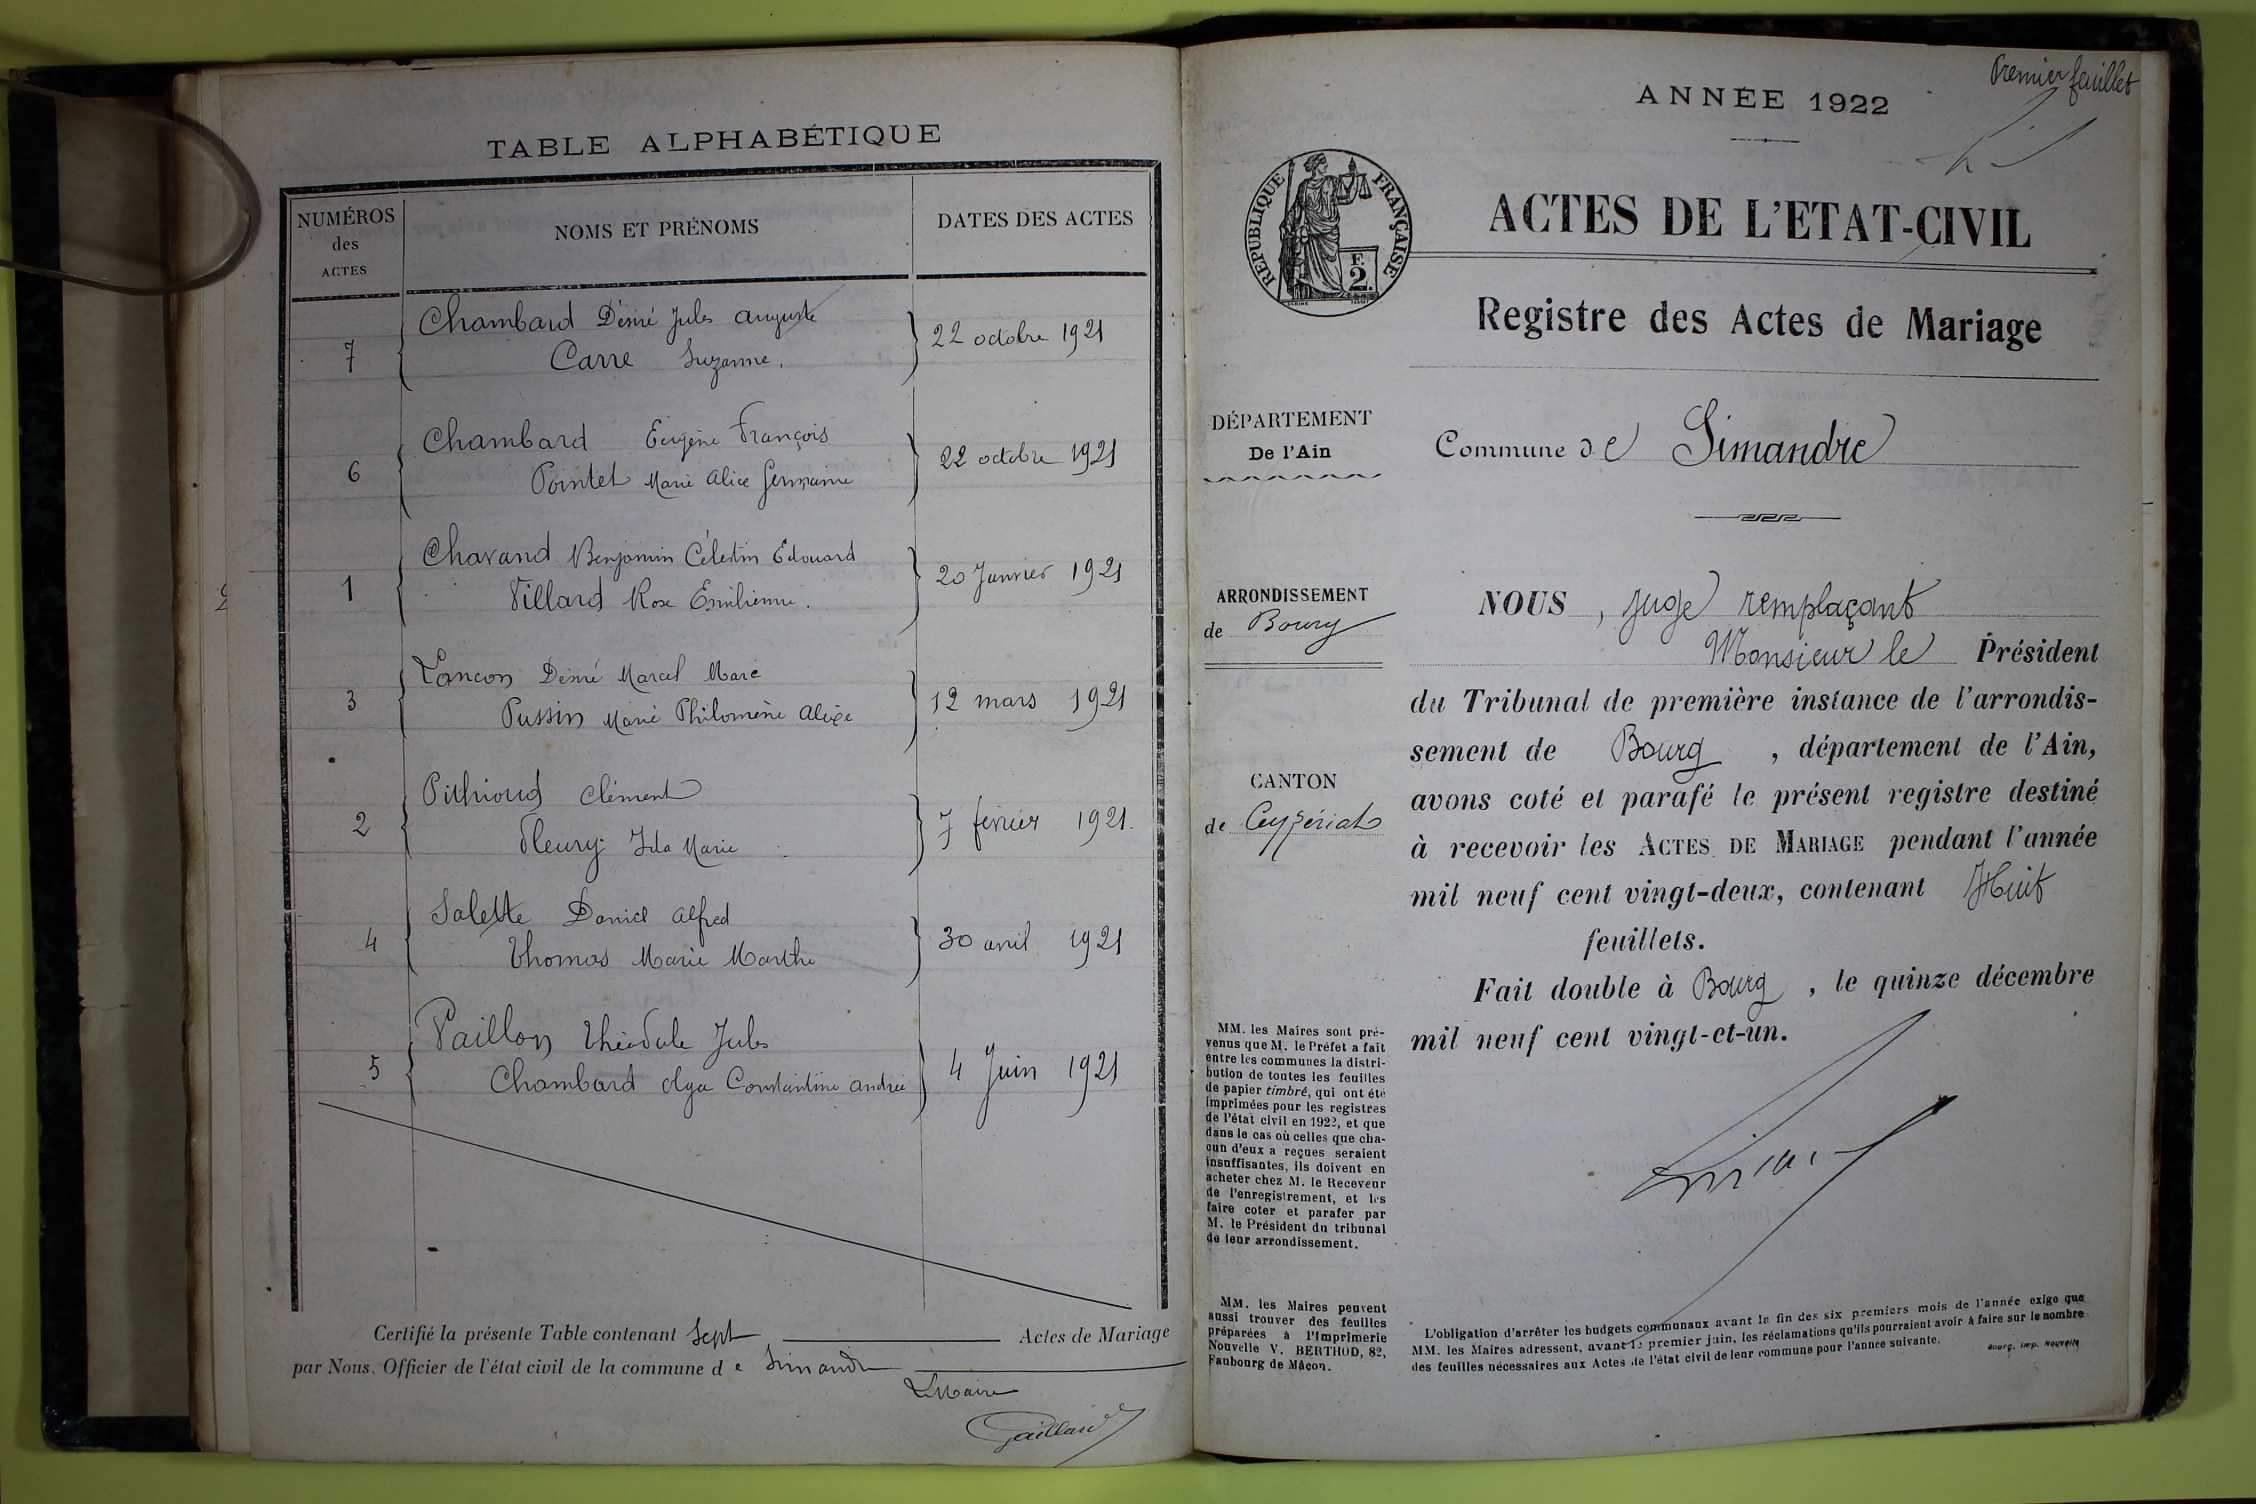 TABLE ALPHABÉTIQUE
NUMÉROS
des
ACTES
NOMS ET PRÉNOMS
DATES DES ACTES
7
Chambard Désiré Jules Auguste
Carre Suzanne.
22 octobre 1921
6
Chambard Eugène François
Pointet Marie Alice Germaine
22 octobre 1921
1
Chavand Benjamin Célestin Edouard
Villard Rose Emilienne.
20 Janvier 1921
3
Lançon Désiré Marcel Marie
Pussin Marie Philomène Alixe
12 mars 1921
2
Pithioud Clément
Fleury Ida Marie
7 février 1921.
4
Salette Daniel Alfred
Thomas Marie Marthe
30 avril 1921
5
Vaillon Théodule Jules
Chambard Olga Constantine Andrée
4 Juin 1921
Certifié la présente Table contenant Sept Actes de Mariage
par Nous, Officier de l'état civil de la commune d e Simandre
Le Maire
Gaillard
Premier feuillet
ANNÉE 1922
RÉPUBLIQUE FRANÇAISE
2 F.
ACTES DE L'ETAT-CIVIL
Registre des Actes de Mariage
DÉPARTEMENT
De l'Ain
Commune de Simandre
ARRONDISSEMENT
de Bourg
CANTON
de Ceyzériat
NOUS, Juge remplaçant
Monsieur le Président
du Tribunal de première instance de l'arrondis-
sement de Bourg, département de l'Ain,
avons coté et parafé le présent registre destiné
à recevoir les ACTES DE MARIAGE pendant l'année
mil neuf cent vingt-deux, contenant Huit
feuillets.
Fait double à Bourg, le quinze décembre
mil neuf cent vingt-et-un.
MM. les Maires sont pré-
venus que M. le Préfet a fait
entre les communes la distri-
bution de toutes les feuilles
de papier timbré, qui ont été
imprimées pour les registres
de l'état civil en 1922, et que
dans le cas où celles que cha-
cun d'eux a reçues seraient
insuffisantes, ils doivent en
acheter chez M. le Receveur
de l'enregistrement, et les
faire coter et parafer par
M. le Président du tribunal
de leur arrondissement.
MM. les Maires peuvent
aussi trouver des feuilles
préparées à l'Imprimerie
Nouvelle V. BERTHOD, 82,
Faubourg de Mâcon.
L'obligation d'arrêter les budgets communaux avant la fin des six premiers mois de l'année exige que
MM. les Maires adressent, avant le premier juin, les réclamations qu'ils pourraient avoir à faire sur le nombre
des feuilles nécessaires aux Actes de l'état civil de leur commune pour l'année suivante.
Bourg, Imp. Nouvelle